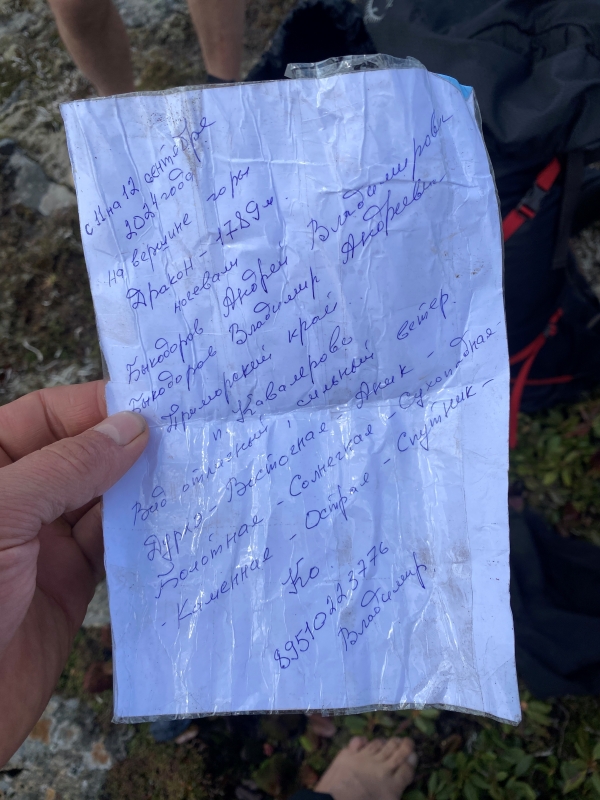 с 11 на 12 сентебре
2021 года
на вершине горы
Дракон - 1789 м.
ночевали
Быкодоров Андрей Владимирович
Быкодоров Владимир Андреевич
Приморский край.
п Кавалерово
Вид отличный, сильный ветер.
Дурхэ - Восточная Аник -
Болотная - Солнечная - Сухопадная -
- Каменная - Острая - Спутник -
Ко.
89510223776
Владимир